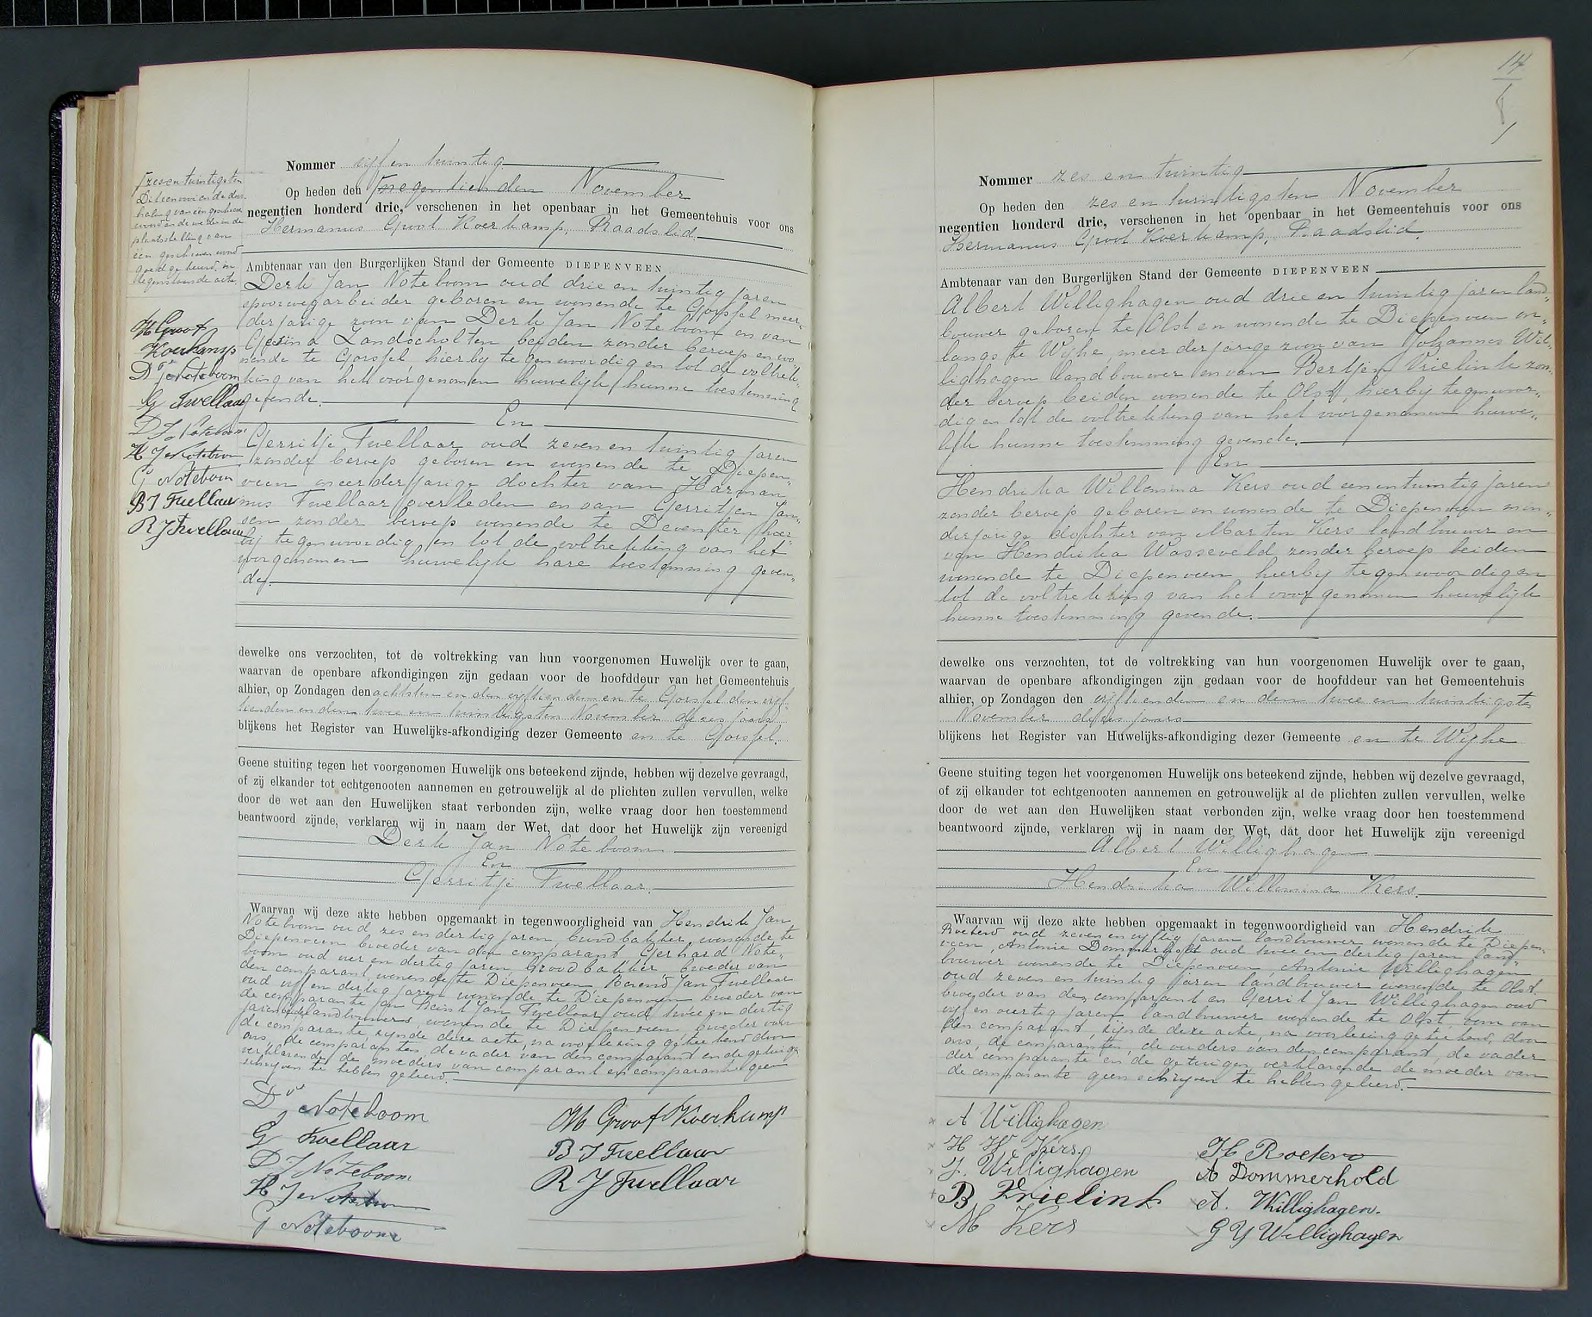 Nommer vyf en twintig
Op heden den negentienden November
negentien honderd drie, verschenen in het openbaar in het Gemeentehuis voor ons
Hermanus Groot Koerkamp, Raadslid
Ambtenaar van den Burgerlijken Stand der Gemeente DIEPENVEEN
Derk Jan Noteboom oud drie en twintig jaren
spoorwegarbeider geboren en wonende te Gorssel meer-
derjarige zoon van Derk Jan Noteboom en van
Landscholten beiden zonder beroep en wo-
nende te Gorssel hierby tegenwoordig en tot de voltrek-
king van het voorgenomen huwelyk hunne toestemming
gevende.
En
Gerritje Twellaar oud zeven en twintig jaren
zonder beroep geboren en wonende te Diepen-
veen meerderjarige dochter van Harma-
nus Twellaar overleden en van Gerritjen Jan-
sen zonder beroep wonende te Deventer hier-
by tegenwoordig en tot de voltrekking van het
voorgenomen huwelyk hare toestemming geven-
de.
dewelke ons verzochten, tot de voltrekking van hun voorgenomen Huwelijk over te gaan,
waarvan de openbare afkondigingen zijn gedaan voor de hoofddeur van het Gemeentehuis
alhier, op Zondagen den achtsten en den vyftienden en te Gorssel den vyf-
tienden en den twee en twintigsten November dezes jaars
blijkens het Register van Huwelijks-afkondiging dezer Gemeente en te Gorssel.
Geene stuiting tegen het voorgenomen Huwelijk ons beteekend zijnde, hebben wij dezelve gevraagd,
of zij elkander tot echtgenooten aannemen en getrouwelijk al de plichten zullen vervullen, welke
door de wet aan den Huwelijken staat verbonden zijn, welke vraag door hen toestemmend
beantwoord zijnde, verklaren wij in naam der Wet, dat door het Huwelijk zijn vereenigd
Derk Jan Noteboom
En
Gerritje Twellaar.
Waarvan wij deze akte hebben opgemaakt in tegenwoordigheid van Hendrik Jan
Noteboom oud zes en dertig jaren, broodbakker, wonende te
Diepenveen broeder van den comparant Gerhard Note-
boom oud vier en dertig jaren, broodbakker, broeder van
den comparant wonende te Diepenveen, Berend Jan Twellaar
oud vyf en dertig jaren wonende te Diepenveen broeder van
de comparante en Reint Jan Twellaar oud twee en dertig
jaren landbouwers wonende te Diepenveen, broeder van
de comparante, zynde deze acte, na voorlezing geteekend door
ons, de comparanten, de vader van den comparant en de getuigen
verklarende de moeders van comparant en comparante geen
schryven te hebben geleerd.
D J Noteboom
G Twellaar
D J Noteboom
H J Noteboom
G Noteboom
H Groot Koerkamp
B J Twellaar
R J Twellaar
zes en twintigsten
De
H Groot
Koerkamp
D J Noteboom
G Twellaar
D J Noteboom
H J Noteboom
G Noteboom
B J Twellaar
R J Twellaar
14
Nommer zes en twintig
Op heden den zes en twintigsten November
negentien honderd drie, verschenen in het openbaar in het Gemeentehuis voor ons
Hermanus Groot Koerkamp, Raadslid.
Ambtenaar van den Burgerlijken Stand der Gemeente DIEPENVEEN
Albert Willighagen oud drie en twintig jaren land-
bouwer geboren te Olst en wonende te Diepenveen on-
langs te Wyhe, meerderjarige zoon van Johannes Wil-
lighagen landbouwer en van Bertjen Vrielink zon-
der beroep beiden wonende te Olst, hierby tegenwoor-
dig en tot de voltrekking van het voorgenomen huwe-
lyk hunne toestemming gevende.
En
Hendrika Willemina Kers oud een en twintig jaren
zonder beroep geboren en wonende te Diepenveen min-
derjarige dochter van Marten Kers landbouwer en
van Hendrika Wasseveld zonder beroep beiden
wonende te Diepenveen hierby tegenwoordig en
tot de voltrekking van het voorgenomen huwelyk
hunne toestemming gevende.
dewelke ons verzochten, tot de voltrekking van hun voorgenomen Huwelijk over te gaan,
waarvan de openbare afkondigingen zijn gedaan voor de hoofddeur van het Gemeentehuis
alhier, op Zondagen den vyftienden en den twee en twintigsten
November dezes jaars
blijkens het Register van Huwelijks-afkondiging dezer Gemeente en te Wyhe
Geene stuiting tegen het voorgenomen Huwelijk ons beteekend zijnde, hebben wij dezelve gevraagd,
of zij elkander tot echtgenooten aannemen en getrouwelijk al de plichten zullen vervullen, welke
door de wet aan den Huwelijken staat verbonden zijn, welke vraag door hen toestemmend
beantwoord zijnde, verklaren wij in naam der Wet, dat door het Huwelijk zijn vereenigd
Albert Willighagen
En
Hendrika Willemina Kers.
Waarvan wij deze akte hebben opgemaakt in tegenwoordigheid van Hendrik
oud zeven en vyftig jaren landbouwer wonende te Diepen-
veen, Antonie Dommerhold oud twee en dertig jaren land-
bouwer wonende te Diepenveen, Antonie Willighagen
oud zeven en twintig jaren landbouwer wonende te Olst
broeder van den comparant en Gerrit Jan Willighagen oud
vyf en veertig jaren landbouwer wonende te Olst, oom van
den comparant, zynde deze acte, na voorlezing geteekend, door
ons, de comparanten, de ouders van den comparant, de vader
der comparante en de getuigen verklarende de moeder van
de comparante geen schryven te hebben geleerd.
A Willighagen
H. W. Kers
J. Willighagen
B Vrielink
M Kers
A Dommerhold
A. Willighagen.
G J Willighagen